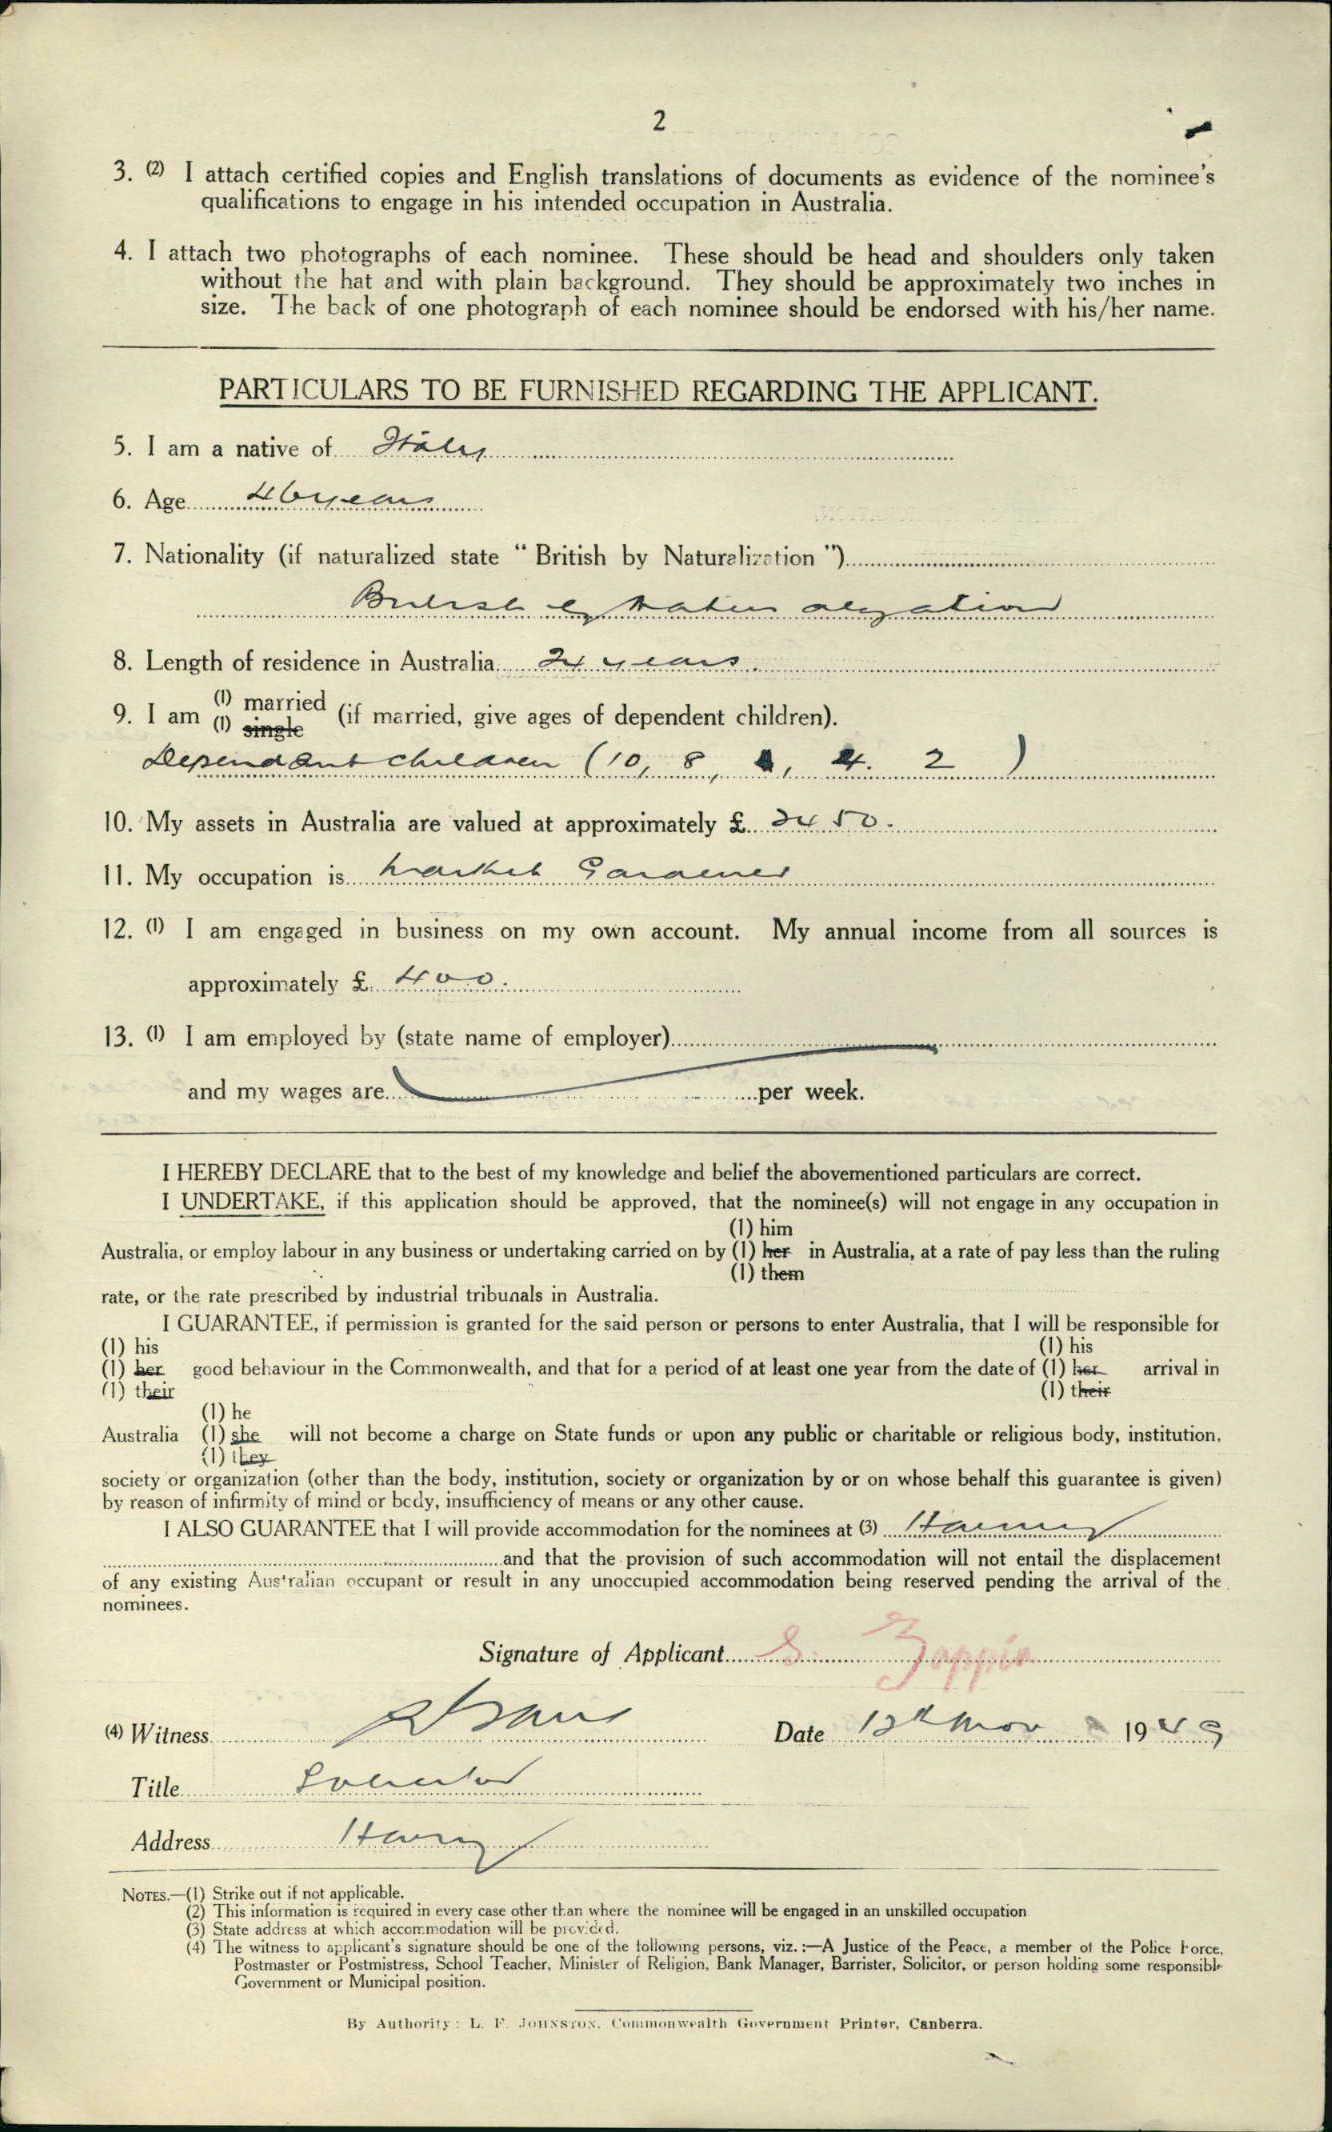 2
3. (2) I attach certified copies and English translations of documents as evidence of the nominee's
qualifications to engage in his intended occupation in Australia.
4. I attach two photographs of each nominee. These should be head and shoulders only taken
without the hat and with plain background. They should be approximately two inches in
size. The back of one photograph of each nominee should be endorsed with his/her name.
PARTICULARS TO BE FURNISHED REGARDING THE APPLICANT.
5. I am a native of Italy
6. Age 46 years
7. Nationality (if naturalized state "British by Naturalization")
British by Naturalization
8. Length of residence in Australia 24 years.
9. I am (1) married
(1) single (if married, give ages of dependent children).
Dependant children (10, 8, 4. 2 )
10. My assets in Australia are valued at approximately £ 2450.
11. My occupation is Market Gardener
12. (1) I am engaged in business on my own account. My annual income from all sources is
approximately £ 400.
13. (1) I am employed by (state name of employer)
and my wages are per week.
I HEREBY DECLARE that to the best of my knowledge and belief the abovementioned particulars are correct.
I UNDERTAKE, if this application should be approved, that the nominee(s) will not engage in any occupation in
(1) him
Australia, or employ labour in any business or undertaking carried on by (1) her in Australia, at a rate of pay less than the ruling
(1) them
rate, or the rate prescribed by industrial tribunals in Australia.
I GUARANTEE, if permission is granted for the said person or persons to enter Australia, that I will be responsible for
(1) his (1) his
(1) her good behaviour in the Commonwealth, and that for a period of at least one year from the date of (1) her arrival in
(1) their (1) their
(1) he
Australia (1) she will not become a charge on State funds or upon any public or charitable or religious body, institution,
(1) they
society or organization (other than the body, institution, society or organization by or on whose behalf this guarantee is given)
by reason of infirmity of mind or body, insufficiency of means or any other cause.
I ALSO GUARANTEE that I will provide accommodation for the nominees at (3) Harvey
and that the provision of such accommodation will not entail the displacement
of any existing Australian occupant or result in any unoccupied accommodation being reserved pending the arrival of the
nominees.
Signature of Applicant G. Zoppia
(4) Witness Date 12th Nov 1949
Title Solicitor
Address Harvey
NOTES.—(1) Strike out if not applicable.
(2) This information is required in every case other than where the nominee will be engaged in an unskilled occupation
(3) State address at which accommodation will be provided.
(4) The witness to applicant's signature should be one of the following persons, viz.:—A Justice of the Peace, a member of the Police Force,
Postmaster or Postmistress, School Teacher, Minister of Religion, Bank Manager, Barrister, Solicitor, or person holding some responsible
Government or Municipal position.
By Authority: L. F. JOHNSTON, Commonwealth Government Printer, Canberra.